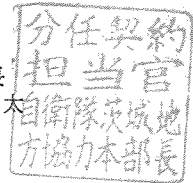 分任契約
担当官
自衛隊茨城地
方協力本部長
太